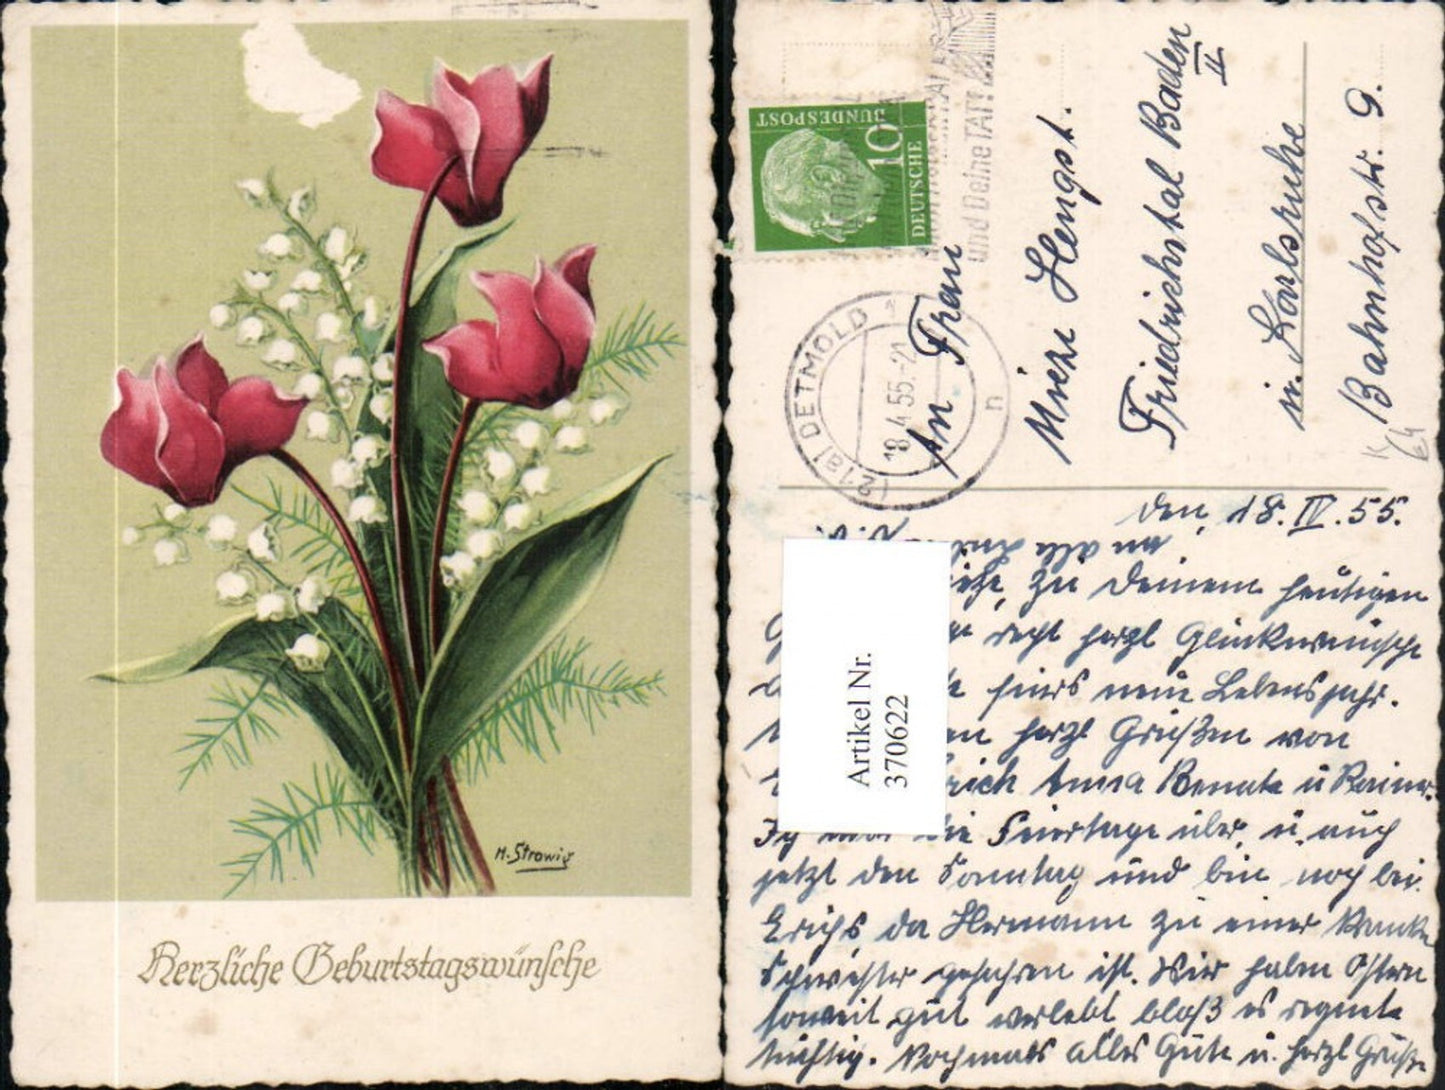 M. Strowig
Herzliche Geburtstagswünsche
DEUTSCHE
BUNDESPOST
10
und Deine TAT!
(21a) DETMOLD
18.4.55.-21
n
An Frau
Mieze Hengst.
Friedrichstal Baden
II
Karlsruhe
Bahnhofstr. 9.
Artikel Nr.
370622
den, 18. IV. 55.
zu Deinem heutigen
recht herzl Glückwünsche
fürs neue Lebensjahr.
herzl Grüßen von
Anna Renate u Rainer.
die Feiertage über, u. auch
jetzt den Sonntag und bin noch bei
Erichs, da Hermann zu einer
Schwester gefahren ist. Wir haben Ostern
soweit gut verlebt bloß es regnete
tüchtig. Nochmals alles Gute u. herzl Grüße